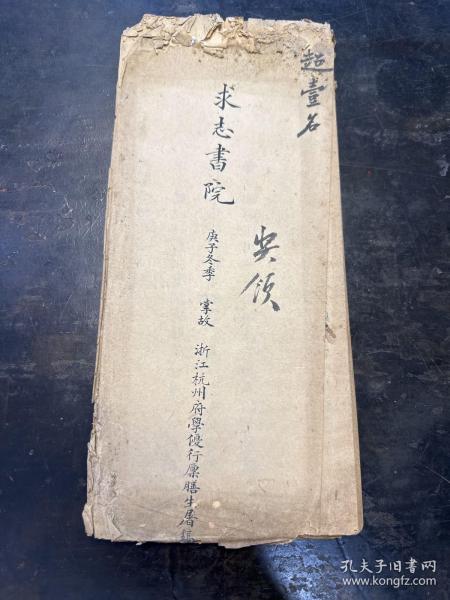 超壹名
奖领
求志書院
庚子冬季 掌故 浙江杭州府學優行廪膳生屠
孔夫子旧书网
www.kongfz.com